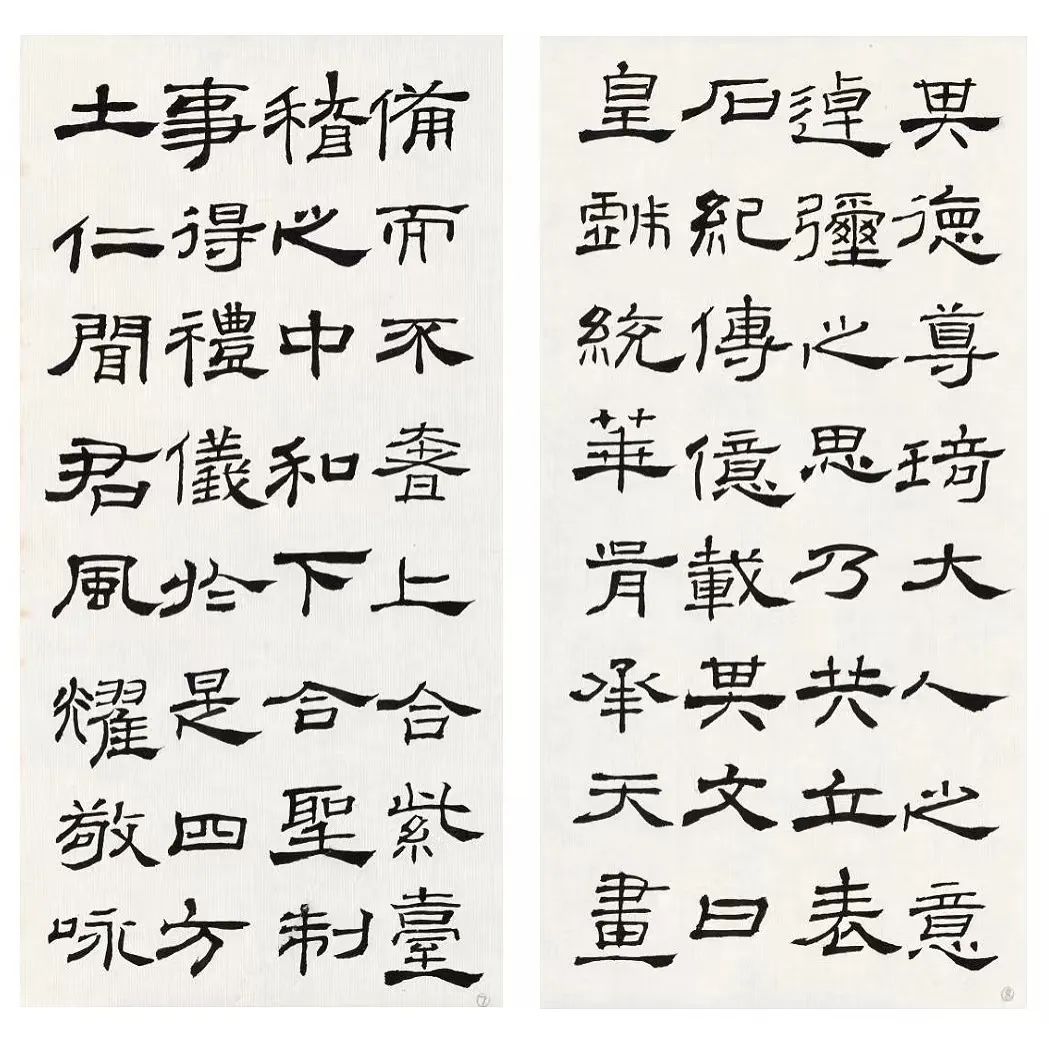 備而不奢上合紫臺
稽之中和下合聖制
事得禮儀於是四方
土仁聞君風燿敬咏
⑦
其德尊琦大人之意
逴彌之思乃共立表
石紀傳億載其文曰
皇戲統華胥承天畫
⑧